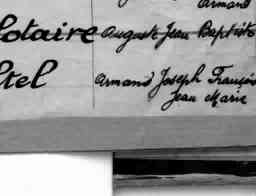 Armand
Notaire Auguste Jean Baptiste
tel Armand Joseph François
Jean Marie